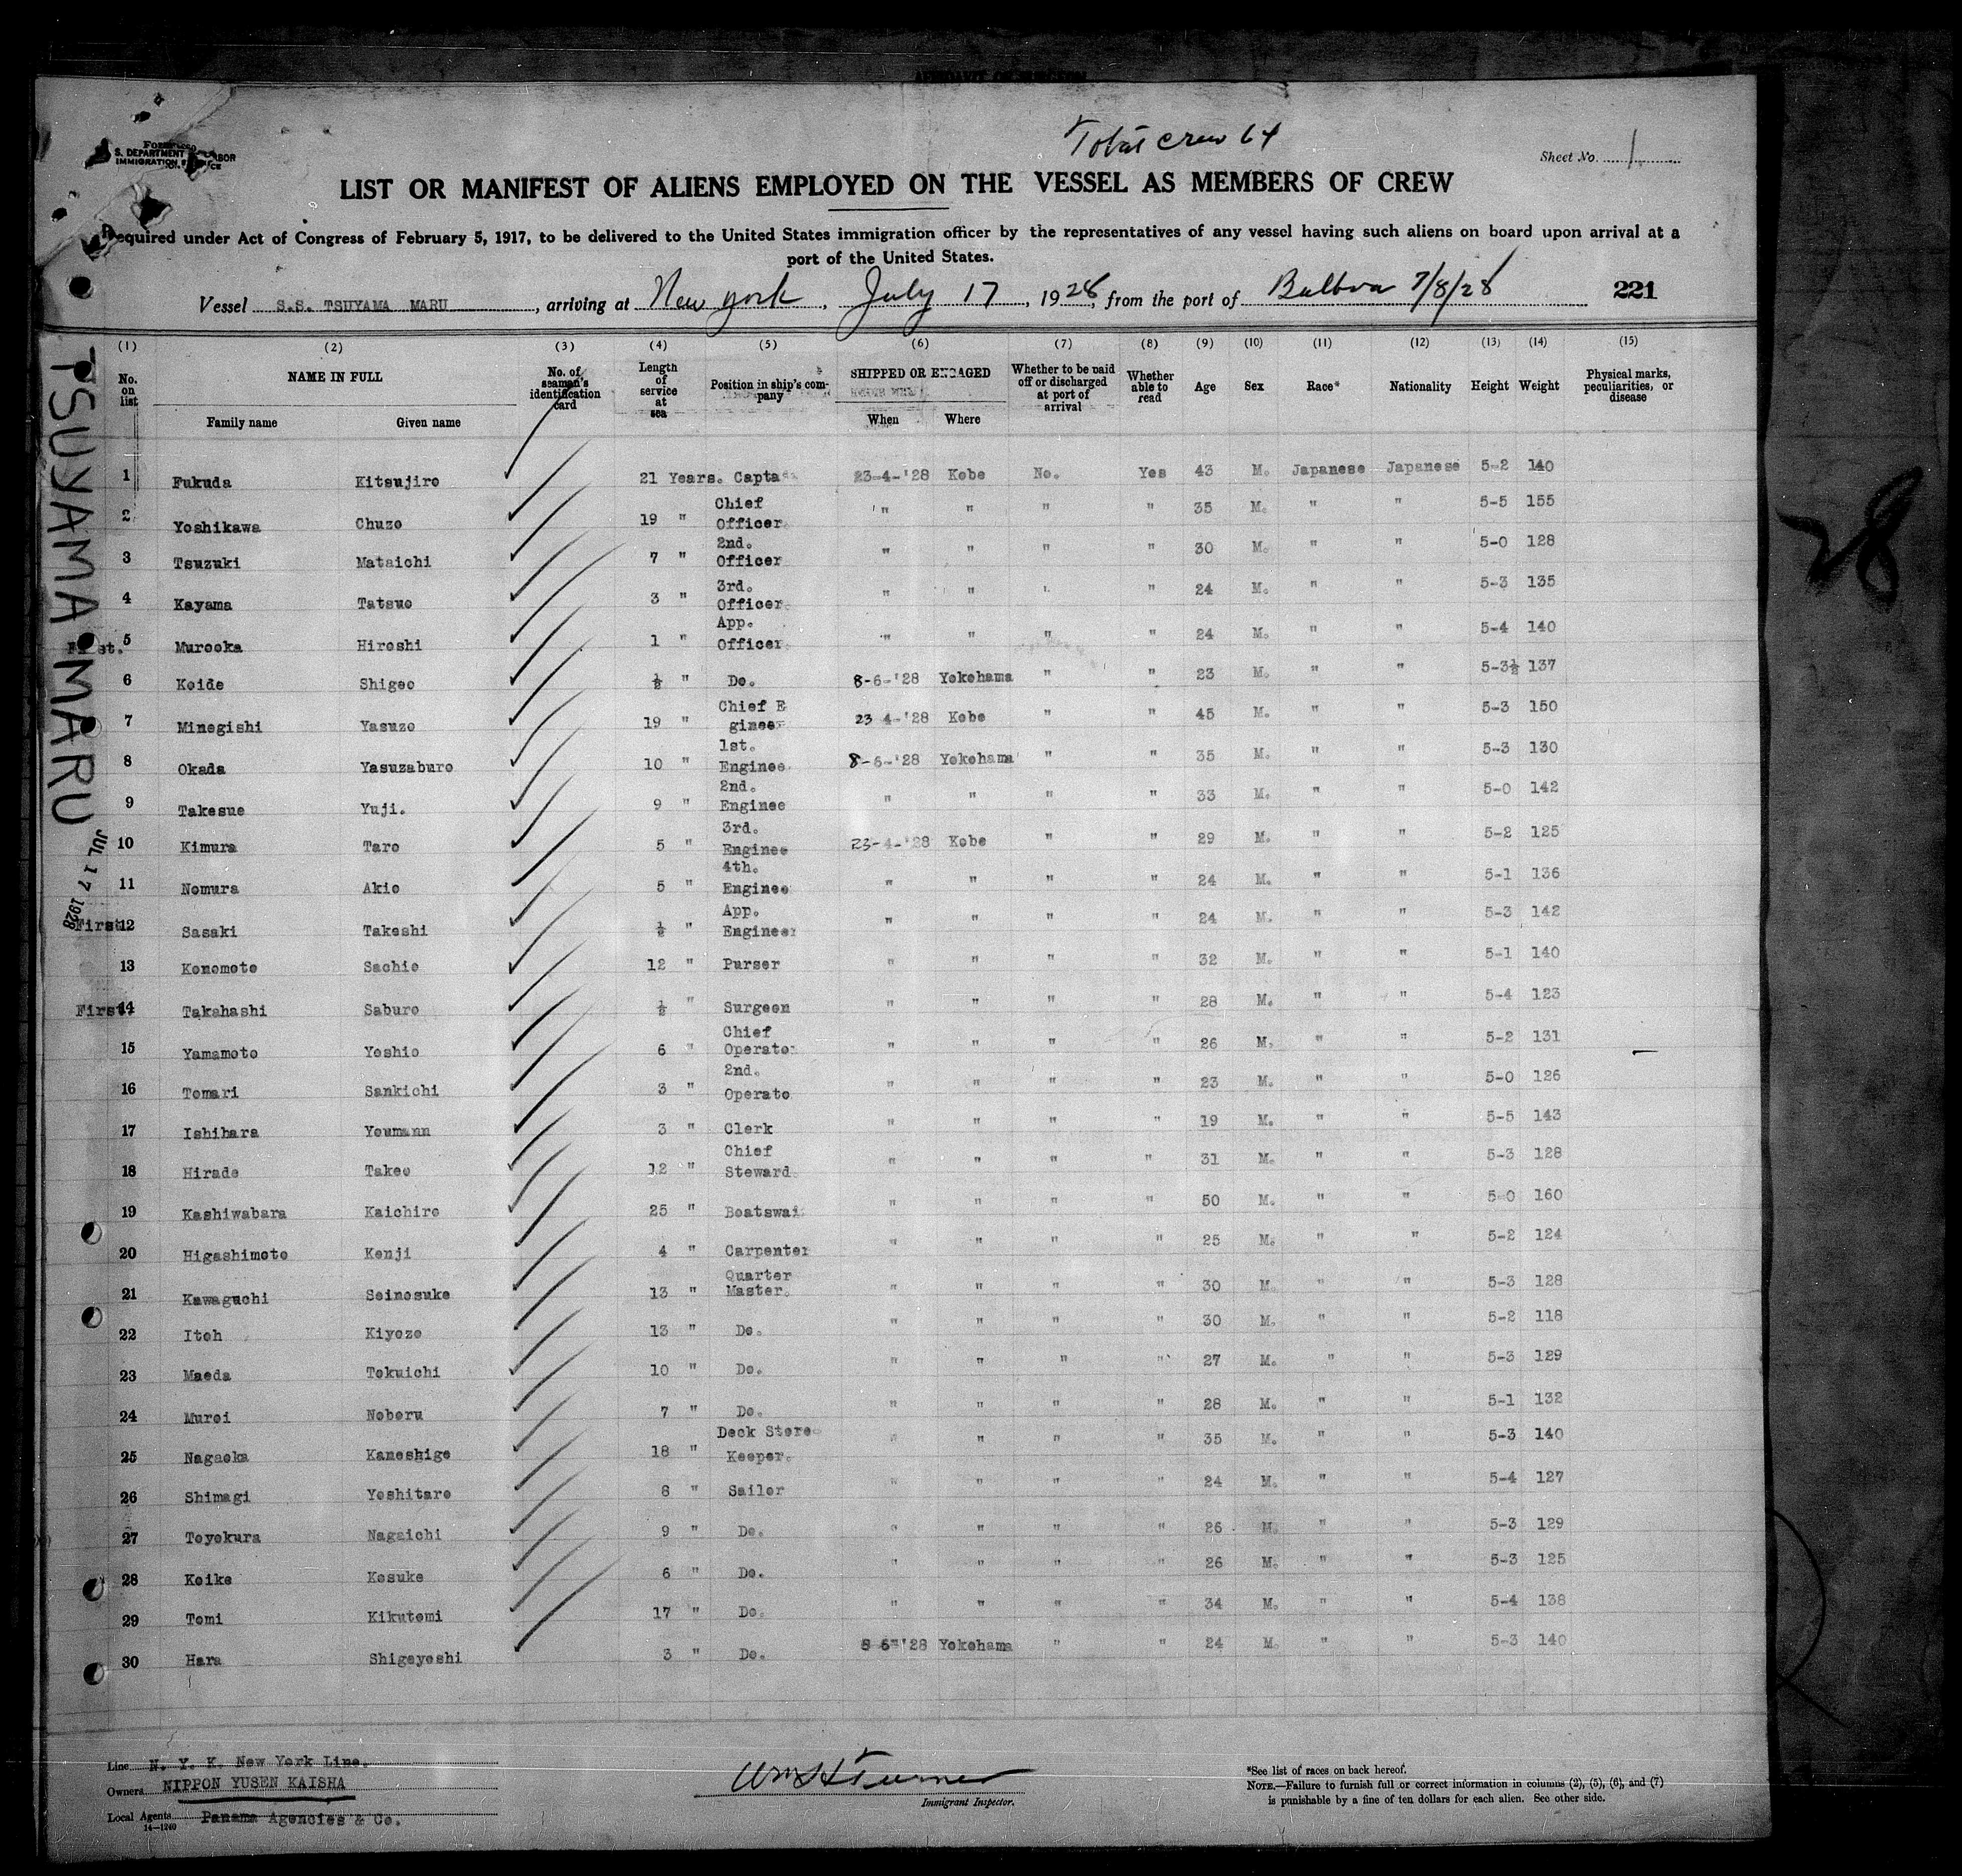 Total crew 64
Sheet No. 1
LIST OR MANIFEST OF ALIENS EMPLOYED ON THE VESSEL AS MEMBERS OF CREW
Required under Act of Congress of February 5, 1917, to be delivered to the United States immigration officer by the representatives of any vessel having such aliens on board upon arrival at a
port of the United States.
Vessel S.S. TSUYAMA MARU, arriving at New York, July 17, 1928, from the port of Balboa 7/8/28 221
(1) (2) (3) (4) (5) (6) (7) (8) (9) (10) (11) (12) (13) (14) (15)
No. on list NAME IN FULL Family name Given name No. of seaman's identification card Length of service at sea Position in ship's company SHIPPED OR ENGAGED When Where Whether to be paid off or discharged at port of arrival Whether able to read Age Sex Race* Nationality Height Weight Physical marks, peculiarities, or disease
1 Fukuda Kitsujiro 21 Years. Capta 23-4-'28 Kobe No. Yes 43 M. Japanese Japanese 5-2 140
2 Yoshikawa Chuzo 19 " Chief Officer " " " " 35 M. " " 5-5 155
3 Tsuzuki Mataichi 7 " 2nd. Officer " " " " 30 M. " " 5-0 128
4 Kayama Tatsuo 3 " 3rd. Officer " " " " 24 M. " " 5-3 135
First. 5 Murooka Hiroshi 1 " App. Officer " " " " 24 M. " " 5-4 140
6 Koide Shigeo ½ " Do. 8-6-'28 Yokohama " " 23 M. " " 5-3½ 137
7 Minegishi Yasuzo 19 " Chief E gineer 23 4-'28 Kobe " " 45 M. " " 5-3 150
8 Okada Yasuzaburo 10 " 1st. Enginee 8-6-'28 Yokohama " " 35 M. " " 5-3 130
9 Takesue Yuji. 9 " 2nd. Enginee " " " " 33 M. " " 5-0 142
10 Kimura Taro 5 " 3rd. Enginee 23-4-'28 Kobe " " 29 M. " " 5-2 125
11 Nomura Akio 5 " 4th. Enginee " " " " 24 M. " " 5-1 136
First 12 Sasaki Takeshi ½ " App. Engineer " " " " 24 M. " " 5-3 142
13 Konomoto Sachio 12 " Purser " " " " 32 M. " " 5-1 140
First 14 Takahashi Saburo ½ " Surgeon " " " " 28 M. " " 5-4 123
15 Yamamoto Yoshio 6 " Chief Operator " " " " 26 M. " " 5-2 131
16 Tomari Sankichi 3 " 2nd. Operato " " " " 23 M. " " 5-0 126
17 Ishihara Youmann 3 " Clerk " " " " 19 M. " " 5-5 143
18 Hirade Takeo 12 " Chief Steward " " " " 31 M. " " 5-3 128
19 Kashiwabara Kaichiro 25 " Boatswai " " " " 50 M. " " 5-0 160
20 Higashimoto Kenji 4 " Carpenter " " " " 25 M. " " 5-2 124
21 Kawaguchi Seinosuke 13 " Quarter Master. " " " " 30 M. " " 5-3 128
22 Itoh Kiyozo 13 " Do. " " " " 30 M. " " 5-2 118
23 Maeda Tokuichi 10 " Do. " " " " 27 M. " " 5-3 129
24 Muroi Noboru 7 " Do. " " " " 28 M. " " 5-1 132
25 Nagaoka Kaneshige 18 " Deck Store Keeper. " " " " 35 M. " " 5-3 140
26 Shimagi Yoshitaro 8 " Sailor " " " " 24 M. " " 5-4 127
27 Toyokura Nagaichi 9 " Do. " " " " 26 M. " " 5-3 129
28 Koike Kosuke 6 " Do. " " " " 26 M. " " 5-3 125
29 Tomi Kikutomi 17 " Do. " " " " 34 M. " " 5-4 138
30 Hara Shigeyoshi 3 " Do. 8 6-'28 Yokohama " " 24 M. " " 5-3 140
TSUYAMA MARU
JUL 17 1928
28
Line N. Y. K. New York Line.
Owners NIPPON YUSEN KAISHA
Local Agents Panama Agencies & Co.
14-1240
Wm H Turner
Immigrant Inspector.
*See list of races on back hereof.
NOTE.—Failure to furnish full or correct information in columns (2), (5), (6), and (7)
is punishable by a fine of ten dollars for each alien. See other side.